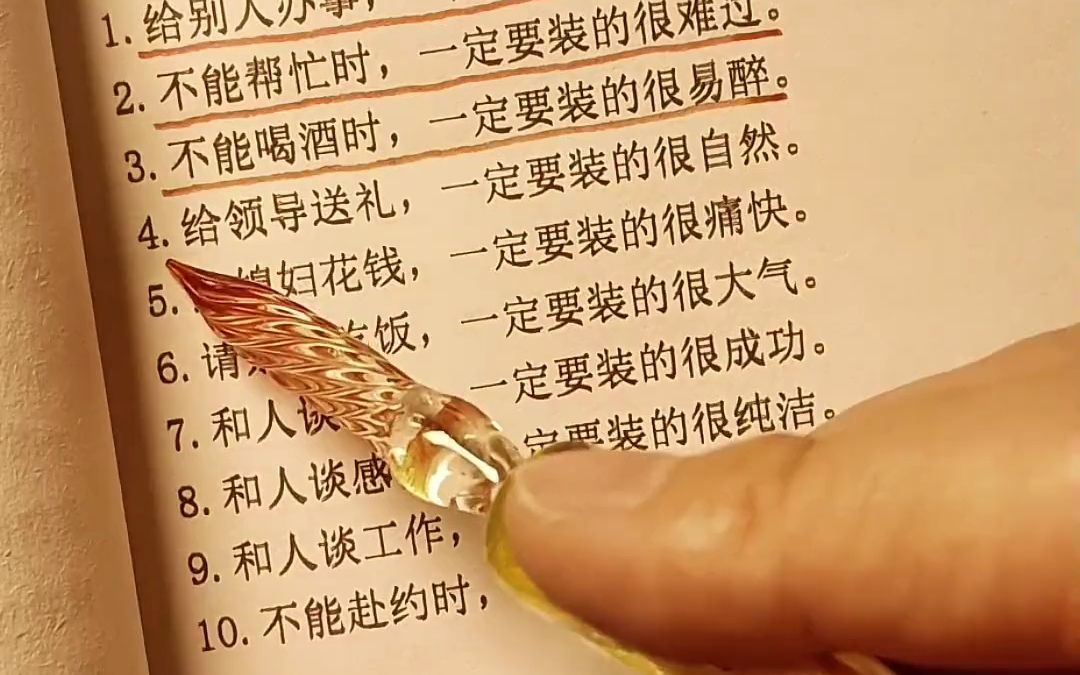 1. 给别人办事，
2. 不能帮忙时，一定要装的很难过。
3. 不能喝酒时，一定要装的很易醉。
4. 给领导送礼，一定要装的很自然。
5. 媳妇花钱，一定要装的很痛快。
6. 请吃饭，一定要装的很大气。
7. 和人谈 一定要装的很成功。
8. 和人谈感 定要装的很纯洁。
9. 和人谈工作，
10. 不能赴约时，